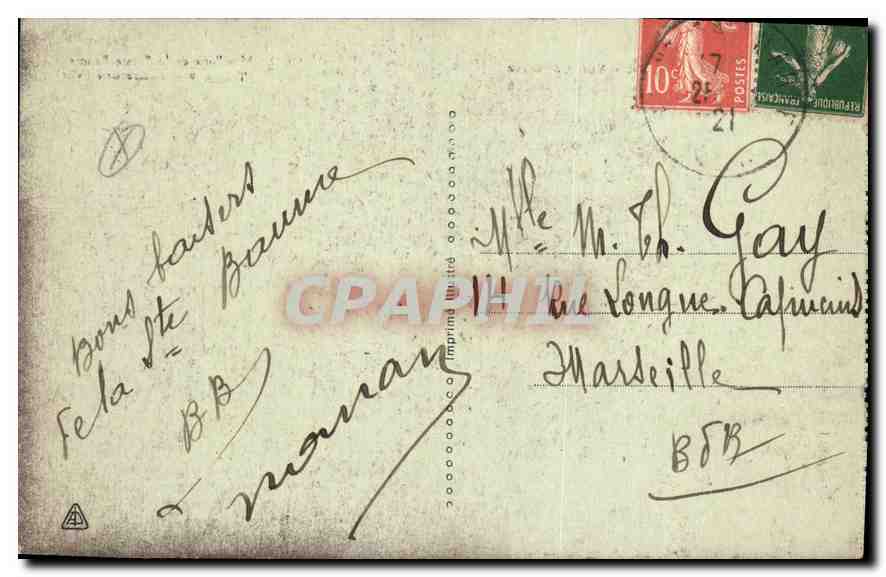 Bons baisers
de la Ste Baume
BB
maman
Imprimé Illustré
CPAPHIL
10c
POSTES
REPUBLIQUE FRANÇAISE
7
25
21
Mlle M. Th. Gay
Rue Longue-Capucins
Marseille
BdR